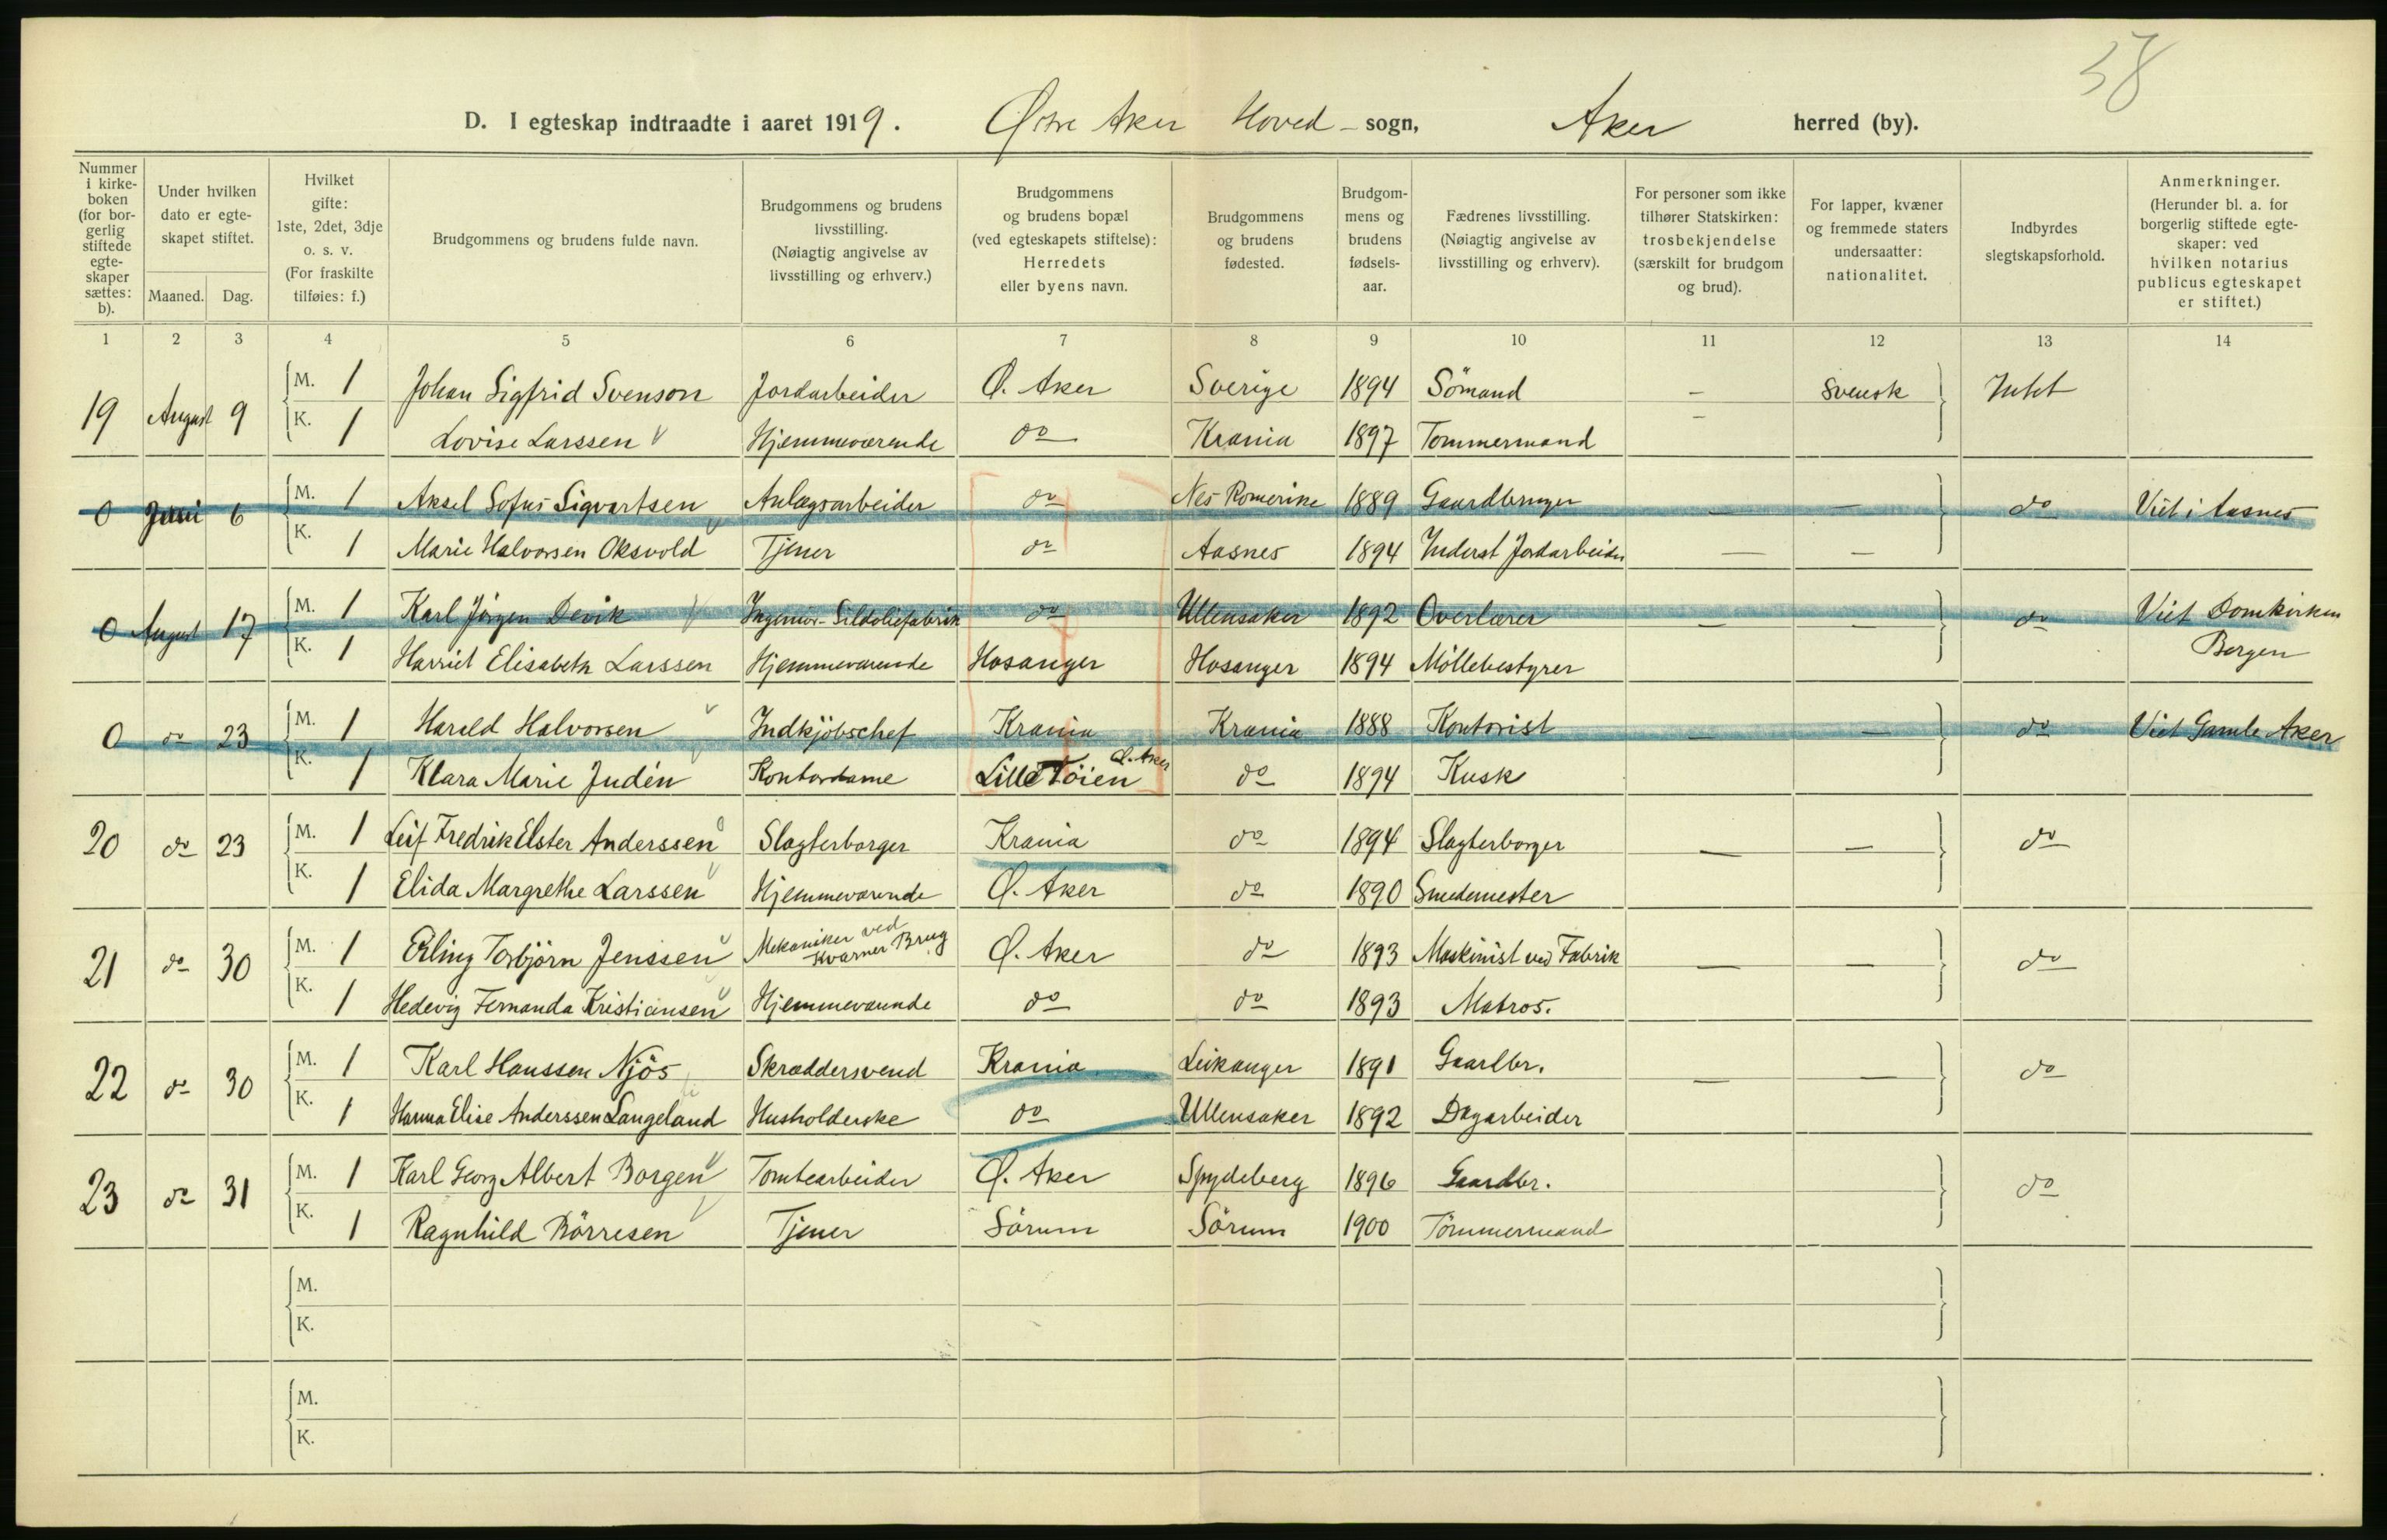 38
D. I egteskap indtraadte i aaret 1919. Østre Aker Hoved - sogn, Aker herred (by).
Nummer i kirke- boken (for bor- gerlig stiftede egte- skaper sættes: b).
Under hvilken dato er egte- skapet stiftet.
Maaned. Dag.
Hvilket gifte: 1ste, 2det, 3dje o. s. v. (For fraskilte tilføies: f.)
Brudgommens og brudens fulde navn.
Brudgommens og brudens livsstilling. (Nøiagtig angivelse av livsstilling og erhverv.)
Brudgommens og brudens bopæl (ved egteskapets stiftelse): Herredets eller byens navn.
Brudgommens og brudens fødested.
Brudgom- mens og brudens fødsels- aar.
Fædrenes livsstilling. (Nøiagtig angivelse av livsstilling og erhverv).
For personer som ikke tilhører Statskirken: trosbekjendelse (særskilt for brudgom og brud).
For lapper, kvæner og fremmede staters undersaatter: nationalitet.
Indbyrdes slegtskapsforhold.
Anmerkninger. (Herunder bl. a. for borgerlig stiftede egte- skaper: ved hvilken notarius publicus egteskapet er stiftet.)
1 2 3 4 5 6 7 8 9 10 11 12 13 14
19 August 9 M. 1 Johan Sigfrid Svenson Jordarbeider Ø. Aker Sverige 1894 Sömand — Svensk Intet
K. 1 Lovise Larssen Hjemmeværende do Krania 1897 Tømmermand —
0 Juni 6 M. 1 Aksel Sofus Sigvartsen Anlægsarbeider do Nes Romerike 1889 Gaardbruger — — do Viet i Aasnes
K. 1 Marie Halvorsen Oksvold Tjener do Aasnes 1894 Inderst Jordarbeider — —
0 August 17 M. 1 Karl Jörgen Devik Ingeniör - Sildoliefabrik do Ullensaker 1892 Overlærer — — do Viet Domkirken
K. 1 Harriet Elisabeth Larssen Hjemmeværende Hosanger Hosanger 1894 Möllebestyrer Bergen
0 do 23 M. 1 Harald Halvorsen Indkjöbschef Krania Krania 1888 Kontorist — — do Viet Gamle Aker
K. 1 Klara Marie Judén Kontordame Lille Töien Ø. Aker do 1894 Kusk
20 do 23 M. 1 Leif Fredrik Elster Anderssen Slagterborger Krania do 1894 Slagterborger — — do
K. 1 Elida Margrethe Larssen Hjemmeværende Ø. Aker do 1890 Smedemester
21 do 30 M. 1 Erling Torbjörn Jenssen Mekaniker ved Kværner Brug Ø. Aker do 1893 Maskinist ved Fabrik — — do
K. 1 Hedevig Fernanda Kristiansen Hjemmeværende do do 1893 Matros.
22 do 30 M. 1 Karl Hanssen Njös Skræddersvend Krania Leikanger 1891 Gaardbr. — — do
K. 1 Hanna Elise Anderssen Langeland Husholderske do Ullensaker 1892 Dagarbeider
23 do 31 M. 1 Karl Georg Albert Borgen Tomtearbeider Ø. Aker Spydeberg 1896 Gaardbr. do
K. 1 Ragnhild Börresen Tjener Sörum Sörum 1900 Tömmermand
M.
K.
M.
K.